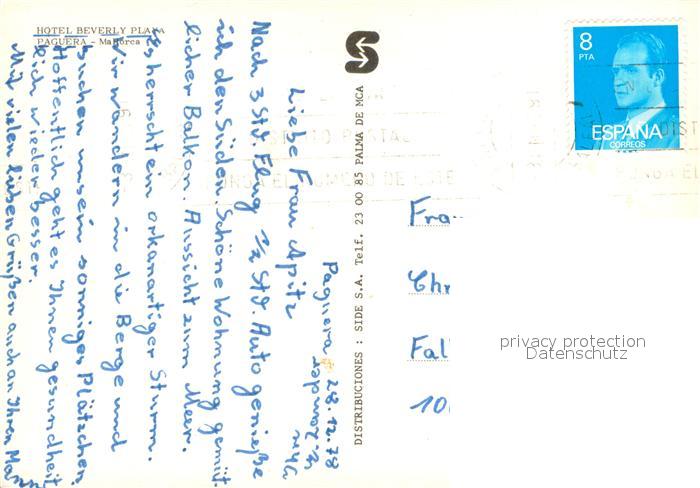 HOTEL BEVERLY PLAYA
PAGUERA - Mallorca
Paguera 28.12.78
Liebe Frau Apitz
Nach 3 Std Flug ½ Std. Auto genieße
ich den Süden. Schöne Wohnung gemüt-
licher Balkon. Aussicht zum Meer.
Es herrscht ein orkanartiger Sturm.
Wir wandern in die Berge und
suchen unser sonniges Plätzchen.
Hoffentlich geht es Ihnen gesundheit-
lich wieder besser.
Mit vielen lieben Grüßen auch an Ihren Mann
DISTRIBUCIONES : SIDE S.A. Telf. 23 00 85 PALMA DE MCA
8
PTA
ESPAÑA
CORREOS
Fra
Chr
Fall
10
privacy protection
Datenschutz